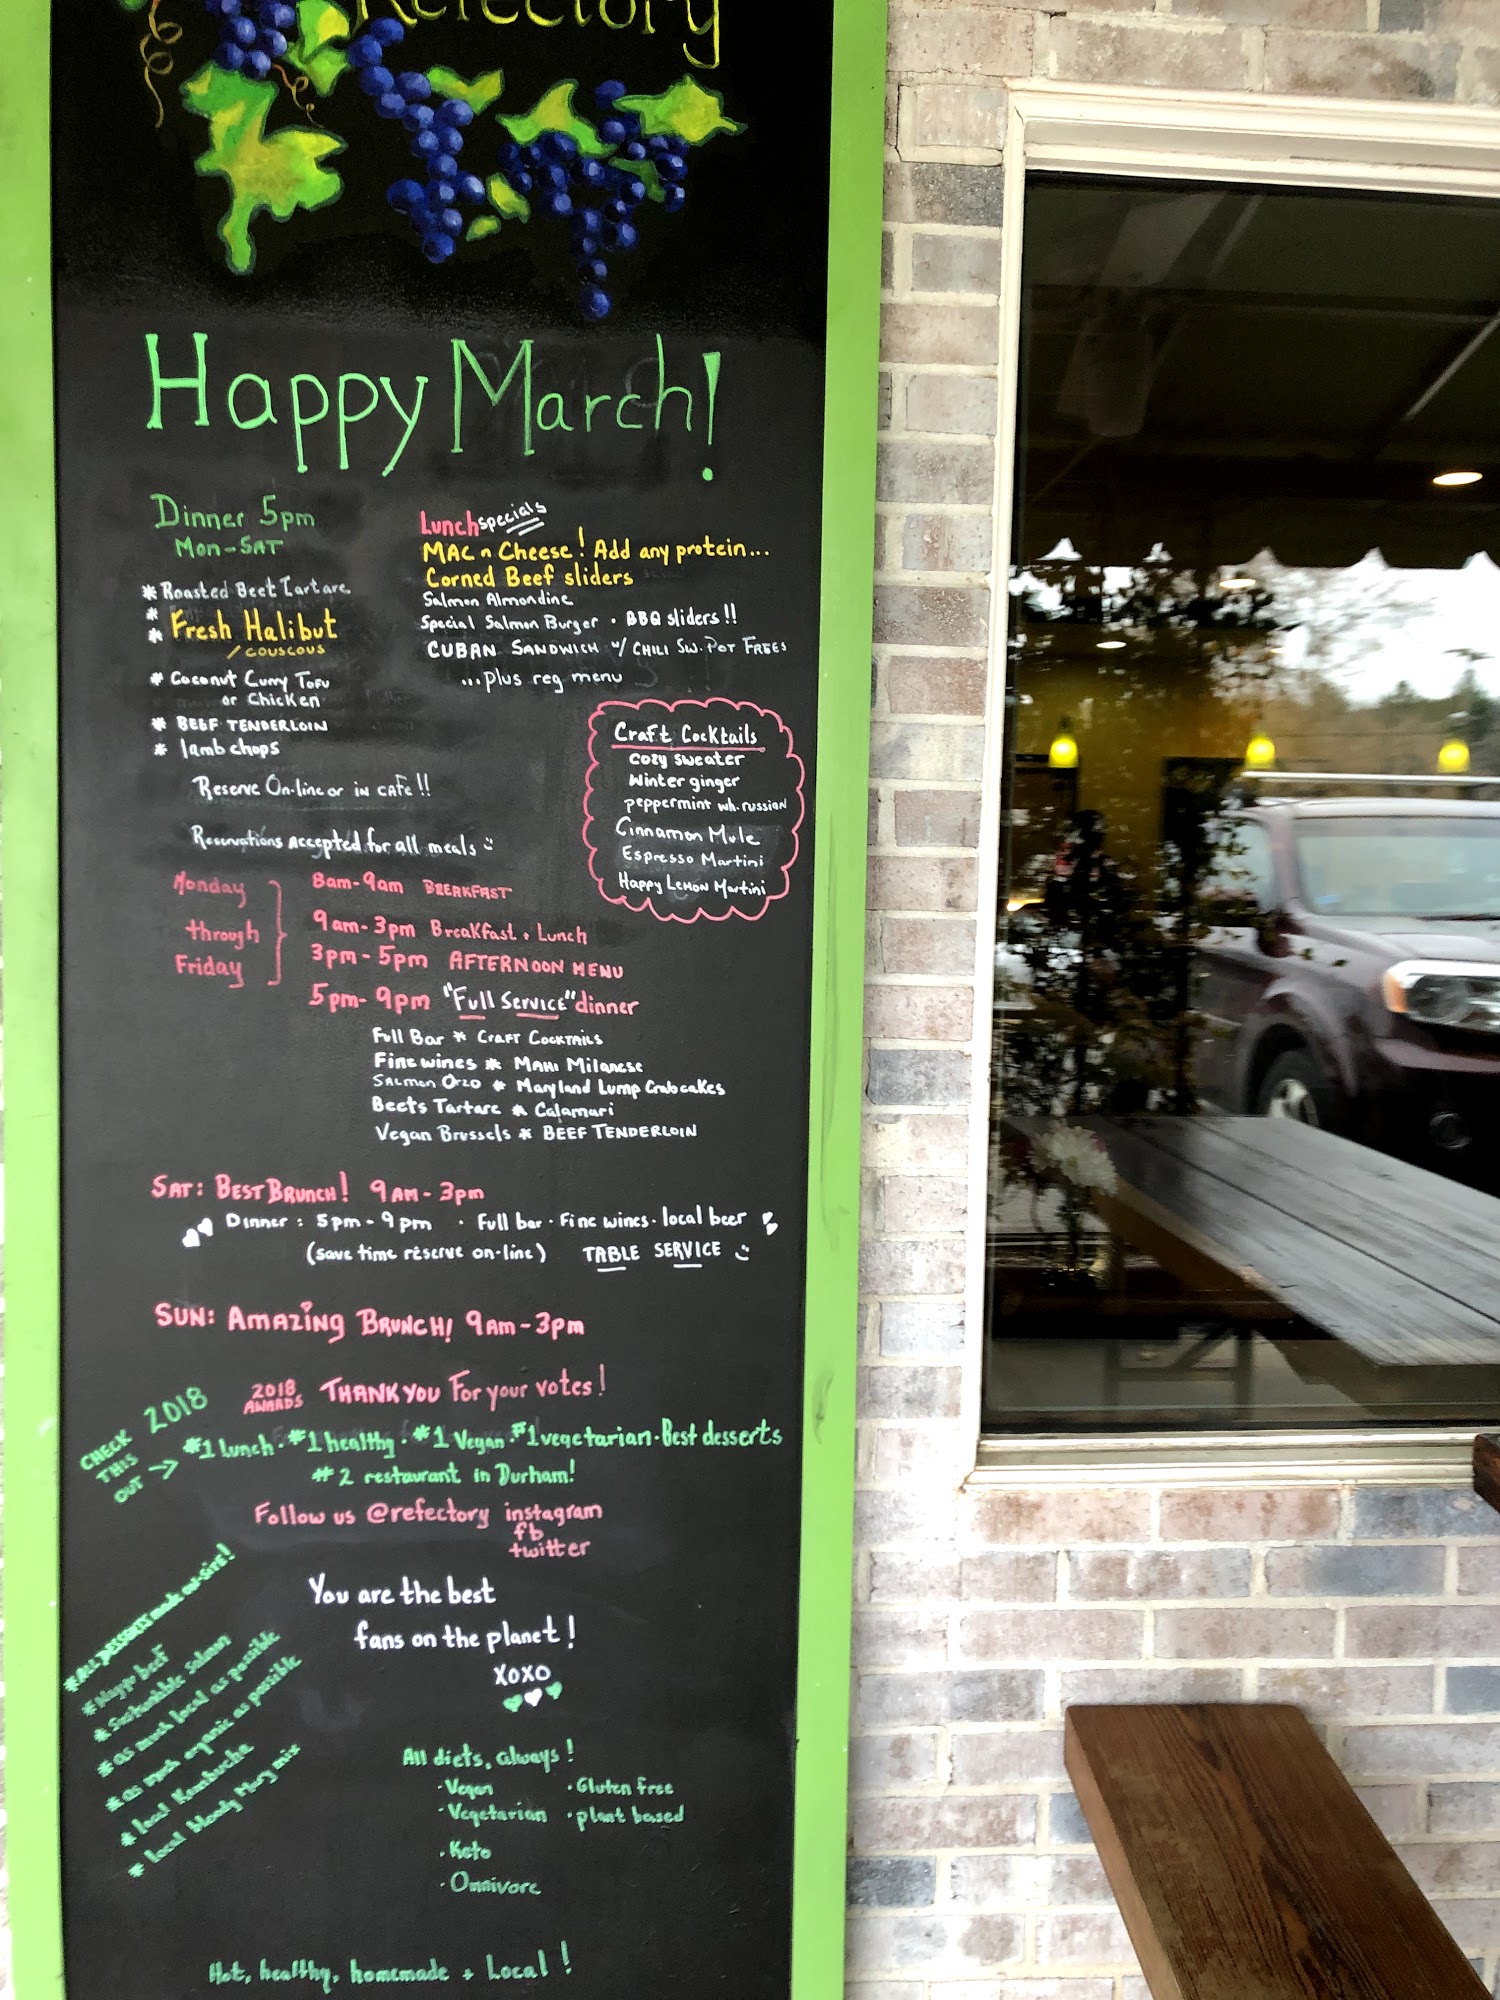 Refectory
Happy March!
Dinner 5pm
Mon-SAT
* Roasted Beet Tartare
*
* Fresh Halibut
/ couscous
* Coconut Curry Tofu
or Chicken
* BEEF TENDERLOIN
* lamb chops
Reserve On-line or in CAFE!!
Reservations accepted for all meals
Lunch specials
MAC n Cheese! Add any protein...
Corned Beef sliders
Salmon Almondine
Special Salmon Burger · BBQ sliders!!
CUBAN SANDWICH w/ CHILI SW. POT FREES
...plus reg menu
Craft Cocktails
cozy sweater
Winter ginger
peppermint wh. russian
Cinnamon Mule
Espresso Martini
Happy LEMON Martini
Monday
through
Friday
8am-9am BREAKFAST
9am-3pm Breakfast + Lunch
3pm-5pm AFTERNOON MENU
5pm-9pm "Full Service" dinner
Full Bar * CRAFT COCKTAILS
Fine wines * MAHI Milanese
Salmon Orzo * Maryland Lump Crabcakes
Beets Tartare * Calamari
Vegan Brussels * BEEF TENDERLOIN
SAT: BEST BRUNCH! 9AM-3pm
Dinner: 5pm-9pm · Full bar · Fine wines · local beer
(save time reserve on-line) TABLE SERVICE
SUN: AMAZING BRUNCH! 9Am-3pm
2018 AWARDS THANK YOU For your votes!
CHECK 2018
THIS
OUT → #1 lunch · #1 healthy · #1 Vegan · #1 vegetarian · Best desserts
#2 restaurant in Durham!
Follow us @refectory instagram
fb
twitter
You are the best
fans on the planet!
XOXO
* ALL DESSERTS made on-SITE!
* Niagra beef
* Sustainable Salmon
* as much local as possible
* as much organic as possible
* local Kombucha
* local bloody Mary mix
All diets, always!
· Vegan · Gluten free
· Vegetarian · plant based
· Keto
· Omnivore
Hot, healthy, homemade + Local!